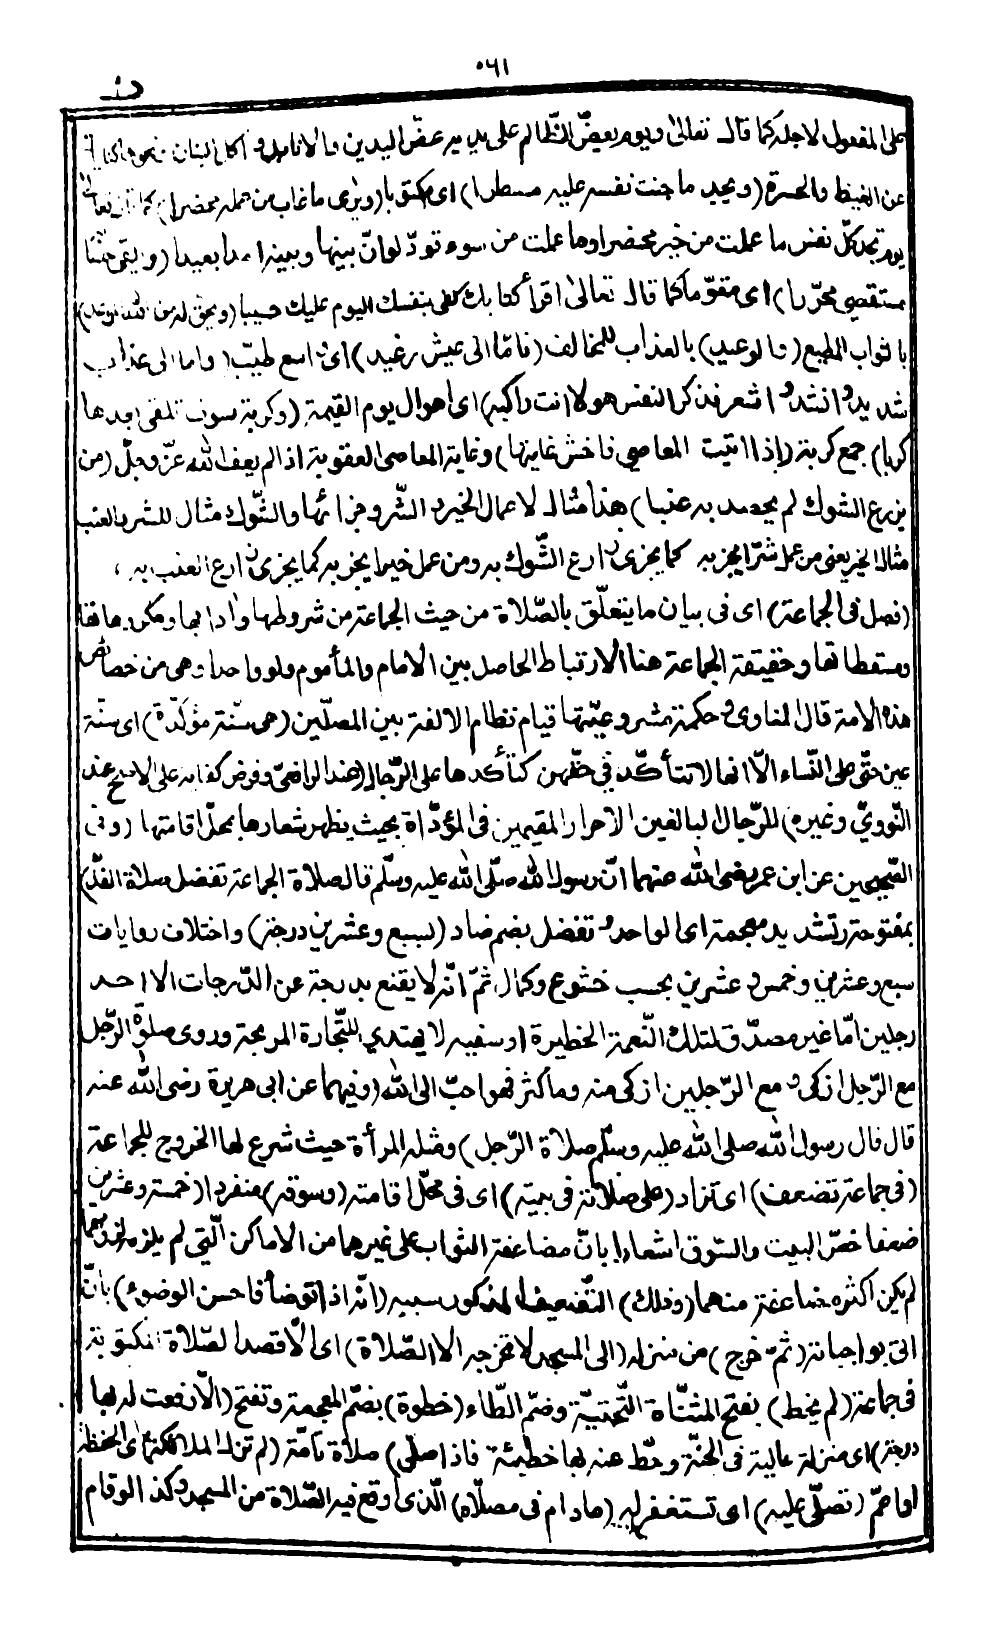 ٠٦١
على المفعول لاجله كما قال تعالى ويوم يعض الظالم على يديه عض اليدين والانامل و اكل البنان من نحوها كناية
عن الغيظ والحسرة (ويجد ما جنت نفسه عليه مسطرا) اى مكتوبا (ويرى ما غاب من عمله محضرا) كما قال تعالى
يوم تجد كلّ نفس ما عملت من خير محضرا وما عملت من سوء تودّ لو انّ بينها وبينه امدا بعيدا (ويلقى
مستقصى محرّرا) اى مقوّما كما قال تعالى اقرأ كتابك كفى بنفسك اليوم عليك حسيبا (ويحق له من الله الوعد)
بالثواب المطيع (والوعيد) بالعذاب للمخالف (فامّا الى عيش رغيد) اى واسع طيّب (واما الى عذاب
شديد) وانشدوا شعر فذكر النفس هولا انت راكبه) اى اهوال يوم القيمة (وكربة سوف تلقى بعدها
كربا) جمع كربة (إذا اتيت المعاصي فاخش غايتها) وغاية المعاصى العقوبة اذا لم يعف الله عزّ وجلّ (من
يزرع الشوك لم يحصد به عنبا) هذا مثال لاعمال الخير و الشّر وجزائها والشّوك مثال للشر والعنب
مثال الخير يعنى من عمل شرّا يجز به كما يجزى زارع الشّوك به ومن عمل خيرا يجز به كما يجزى زارع العنب به ،
(فصل فى الجماعة) اى فى بيان ما يتعلّق بالصّلاة من حيث الجماعة من شروطها وآدابها ومكروهاتها
ومسقطاتها وحقيقة الجماعة هنا الارتباط الحاصل بين الامام والمأموم ولو واحدا وهى من خصائص
هذه الامة قال المناوى وحكمة مشروعيّتها قيام نظام الالفة بين المصلّين (هى سنّة مؤكّدة) اى سنّة
عين حتّى على النّساء الّا انها لا تتأكّد فى حقّهن كتأكدها على الرّجال (عند الرافعىّ وفرض كفاية على الاصحّ عند
النّوويّ وغيره) للرّجال البالغين الاحرار المقيمين فى المؤدّاة بحيث يظهر شعارها بمحلّ اقامتها (وفى
الصّحيحين عن ابن عمر رضى الله عنهما انّ رسول الله صلّى الله عليه وسلّم قال صلاة الجماعة تفضل صلاة الفذّ)
بمفتوحة وتشديد معجمة اى الواحد وتفضل بضم ضاد (لسبع وعشرين درجة) واختلاف روايات
سبع وعشرين وخمس وعشرين بحسب خشوع وكمال ثمّ انّه لا يقنع بدرجة عن الدّرجات الا احد
رجلين امّا غير مصدّق لتلك النّعمة الخطيرة او سفيه لا يهتدي للتّجارة المربحة وروى صلوة الرّجل
مع الرّجل ازكى و مع الرّجلين ازكى منه وما كثر فهو احبّ الى الله (وفيهما عن ابى هريرة رضى الله عنه
قال قال رسول الله صلى الله عليه وسلّم صلاة الرّجل) ومثله المرأة حيث شرع لها الخروج للجماعة
(فى جماعة تضعف) اى تزاد (على صلاته فى بيته) اى فى محلّ اقامته (وسوقه) منفردا (خمسة وعشرين
ضعفا خصّ البيت والسّوق اشعارا بانّ مضاعفة الثواب على غيرهما من الاماكن الّتي لم يلزمه لزومهما
لم يكن اكثر مضاعفة منهما (وذلك) التّضعيف المذكور سببه (انّه اذا توضأ فاحسن الوضوء) بانّ
اتى بواجباته (ثمّ خرج) من منزله (الى المسجد لا تخرجه الا الصّلاة) اى الّا قصد الصّلاة المكتوبة
فى جماعة (لم يخط) بفتح المثنّاة التّحتيّة وضمّ الطّاء (خطوة) بضمّ المعجمة وتفتح (الّا رفعت له بها
درجة) اى منزلة عالية فى الجنّة وحطّ عنه بها خطيئة فاذا صلى) صلاة تامّة (لم تزل الملائكة) اى الحفظة
او اعمّ (تصلّى عليه) اى تستغفر له (ما دام فى مصلّاه) الّذى اوقع فيه الصّلاة من المسجد وكذا لو قام